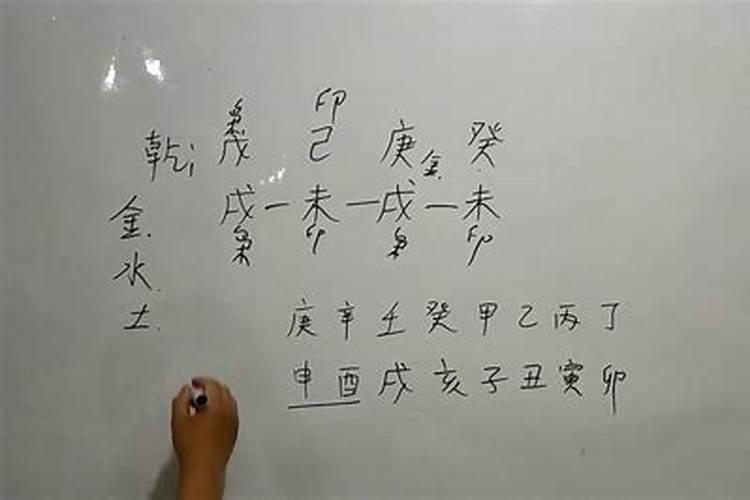 印
枭
乾; 戊 己 庚 癸
金
戌-未-戌-未
枭 印 枭 印
金.
水.
土.
庚辛壬癸甲乙丙丁
申酉戌亥子丑寅卯